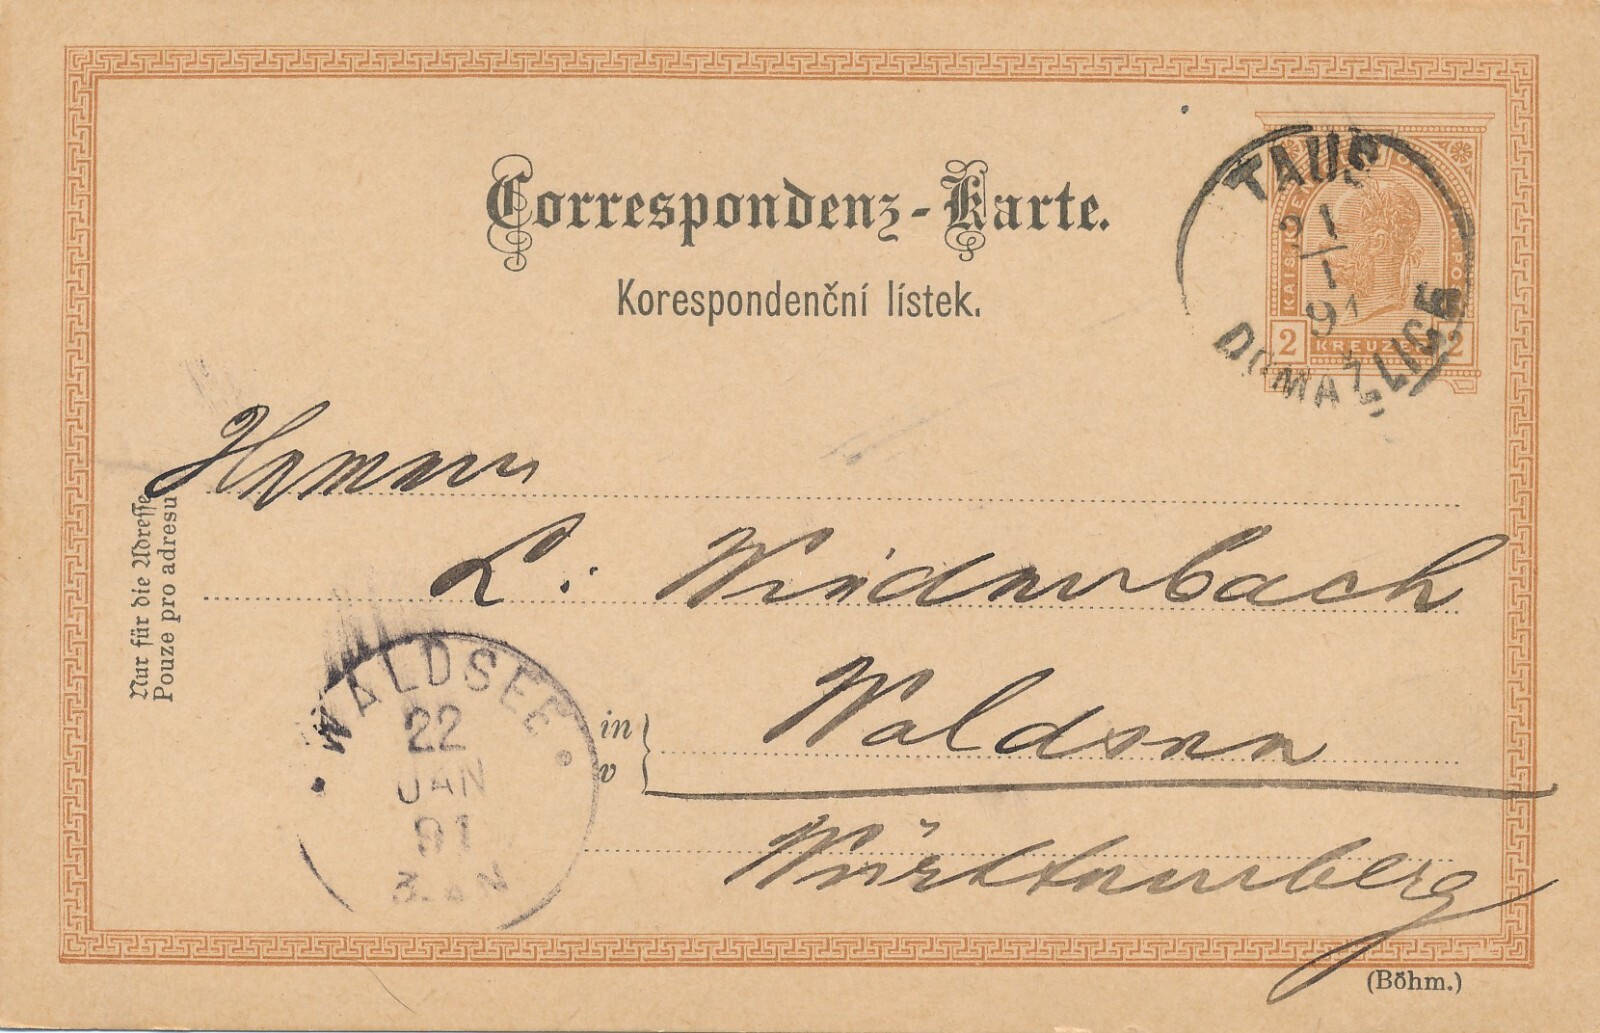 Correspondenz-Karte.
Korespondenční lístek.
TAUS
21
1
91
DOMAŽLICE
2 KREUZER 2
Herrn
L. Niederbach
Waldsee
Württemberg
in
v
Nur für die Adresse
Pouze pro adresu
WALDSEE
22
JAN
91
3-4N
(Böhm.)